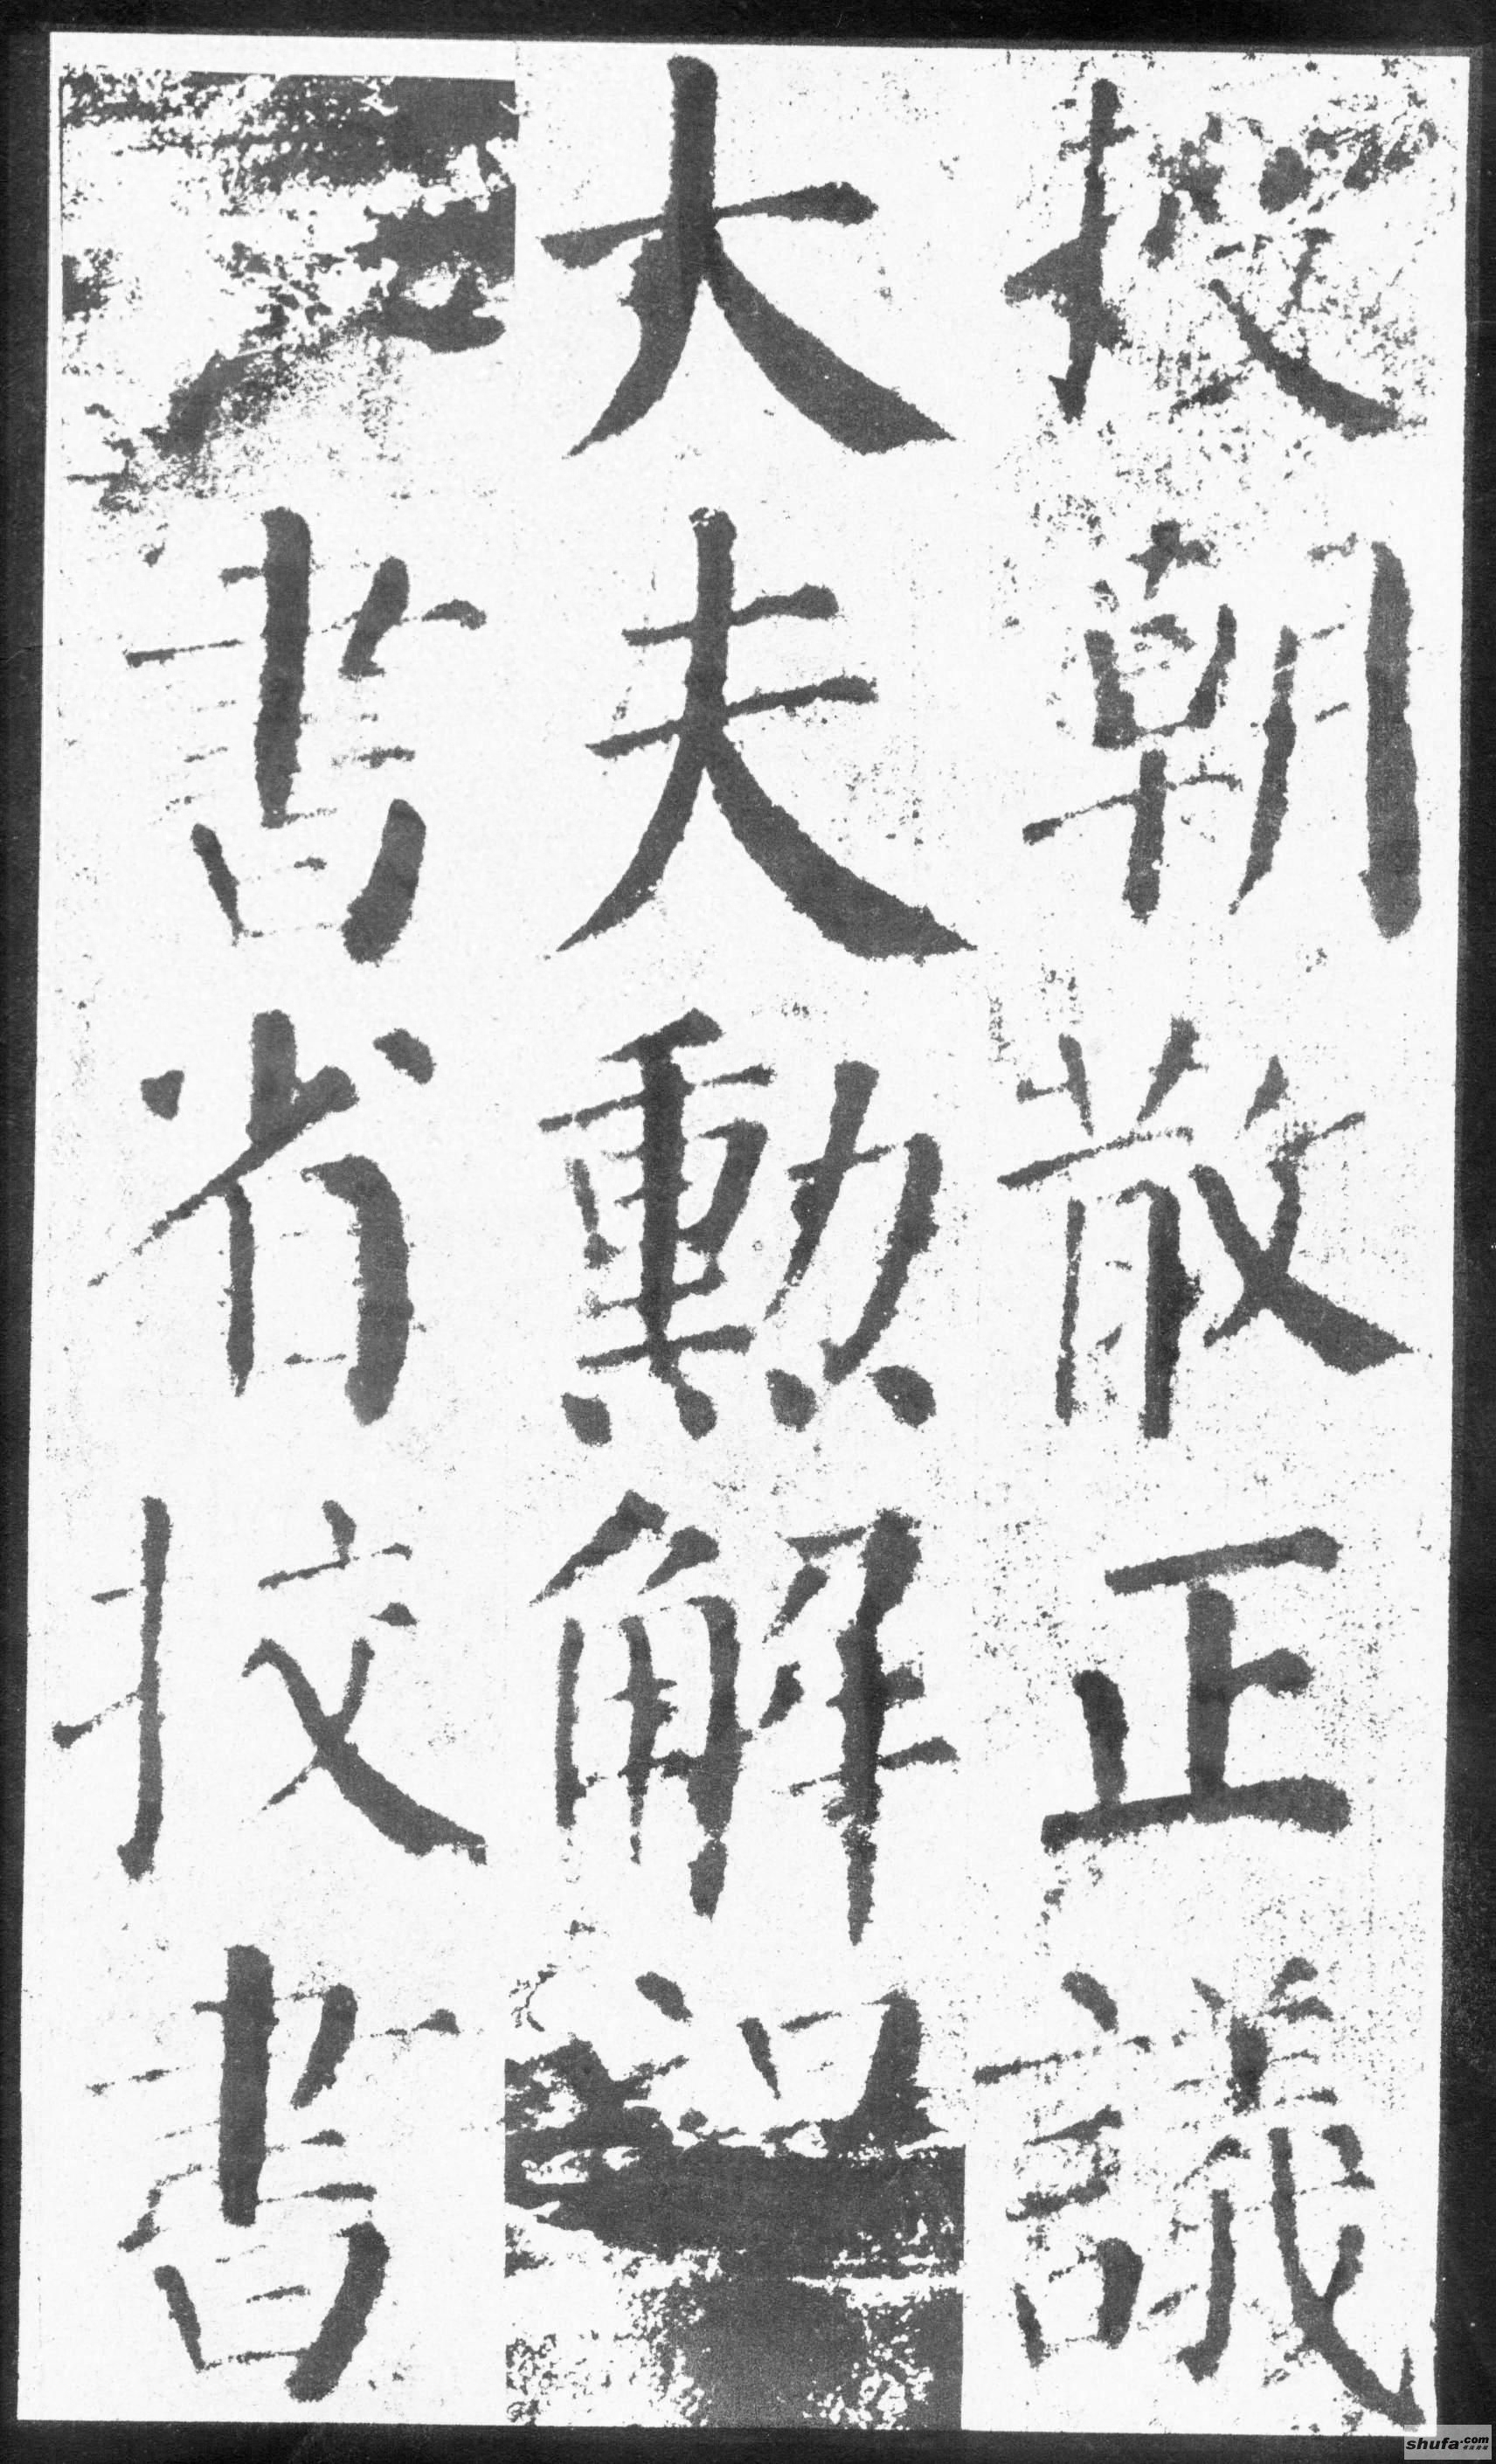 授朝散正議
大夫勳解
書省挍書
shufa.com